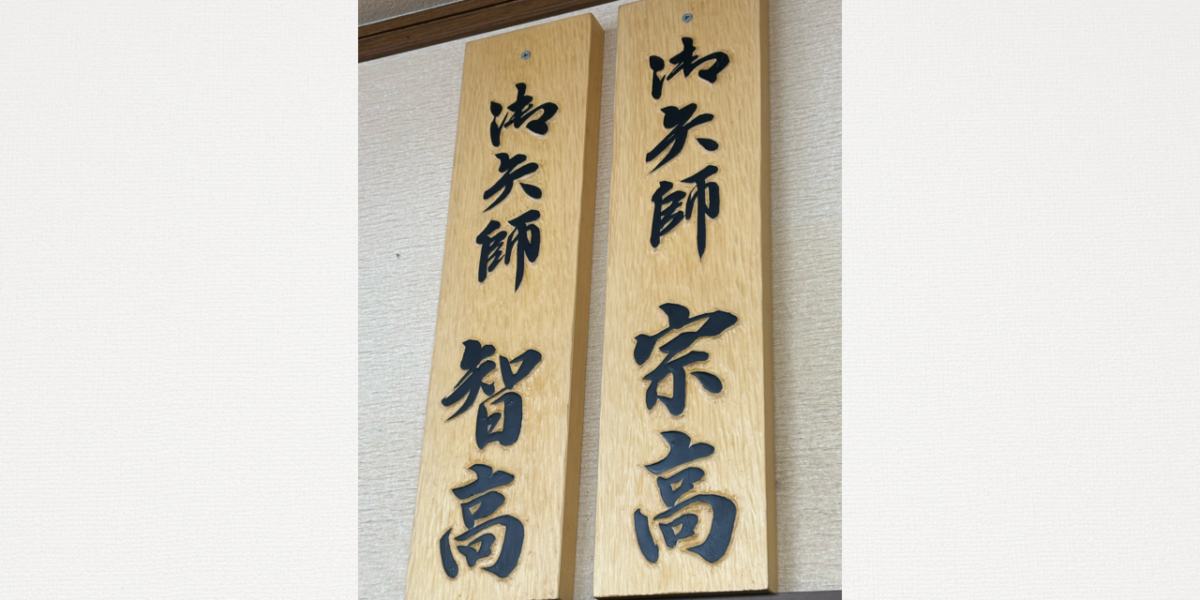 御矢師 宗高
御矢師 智高